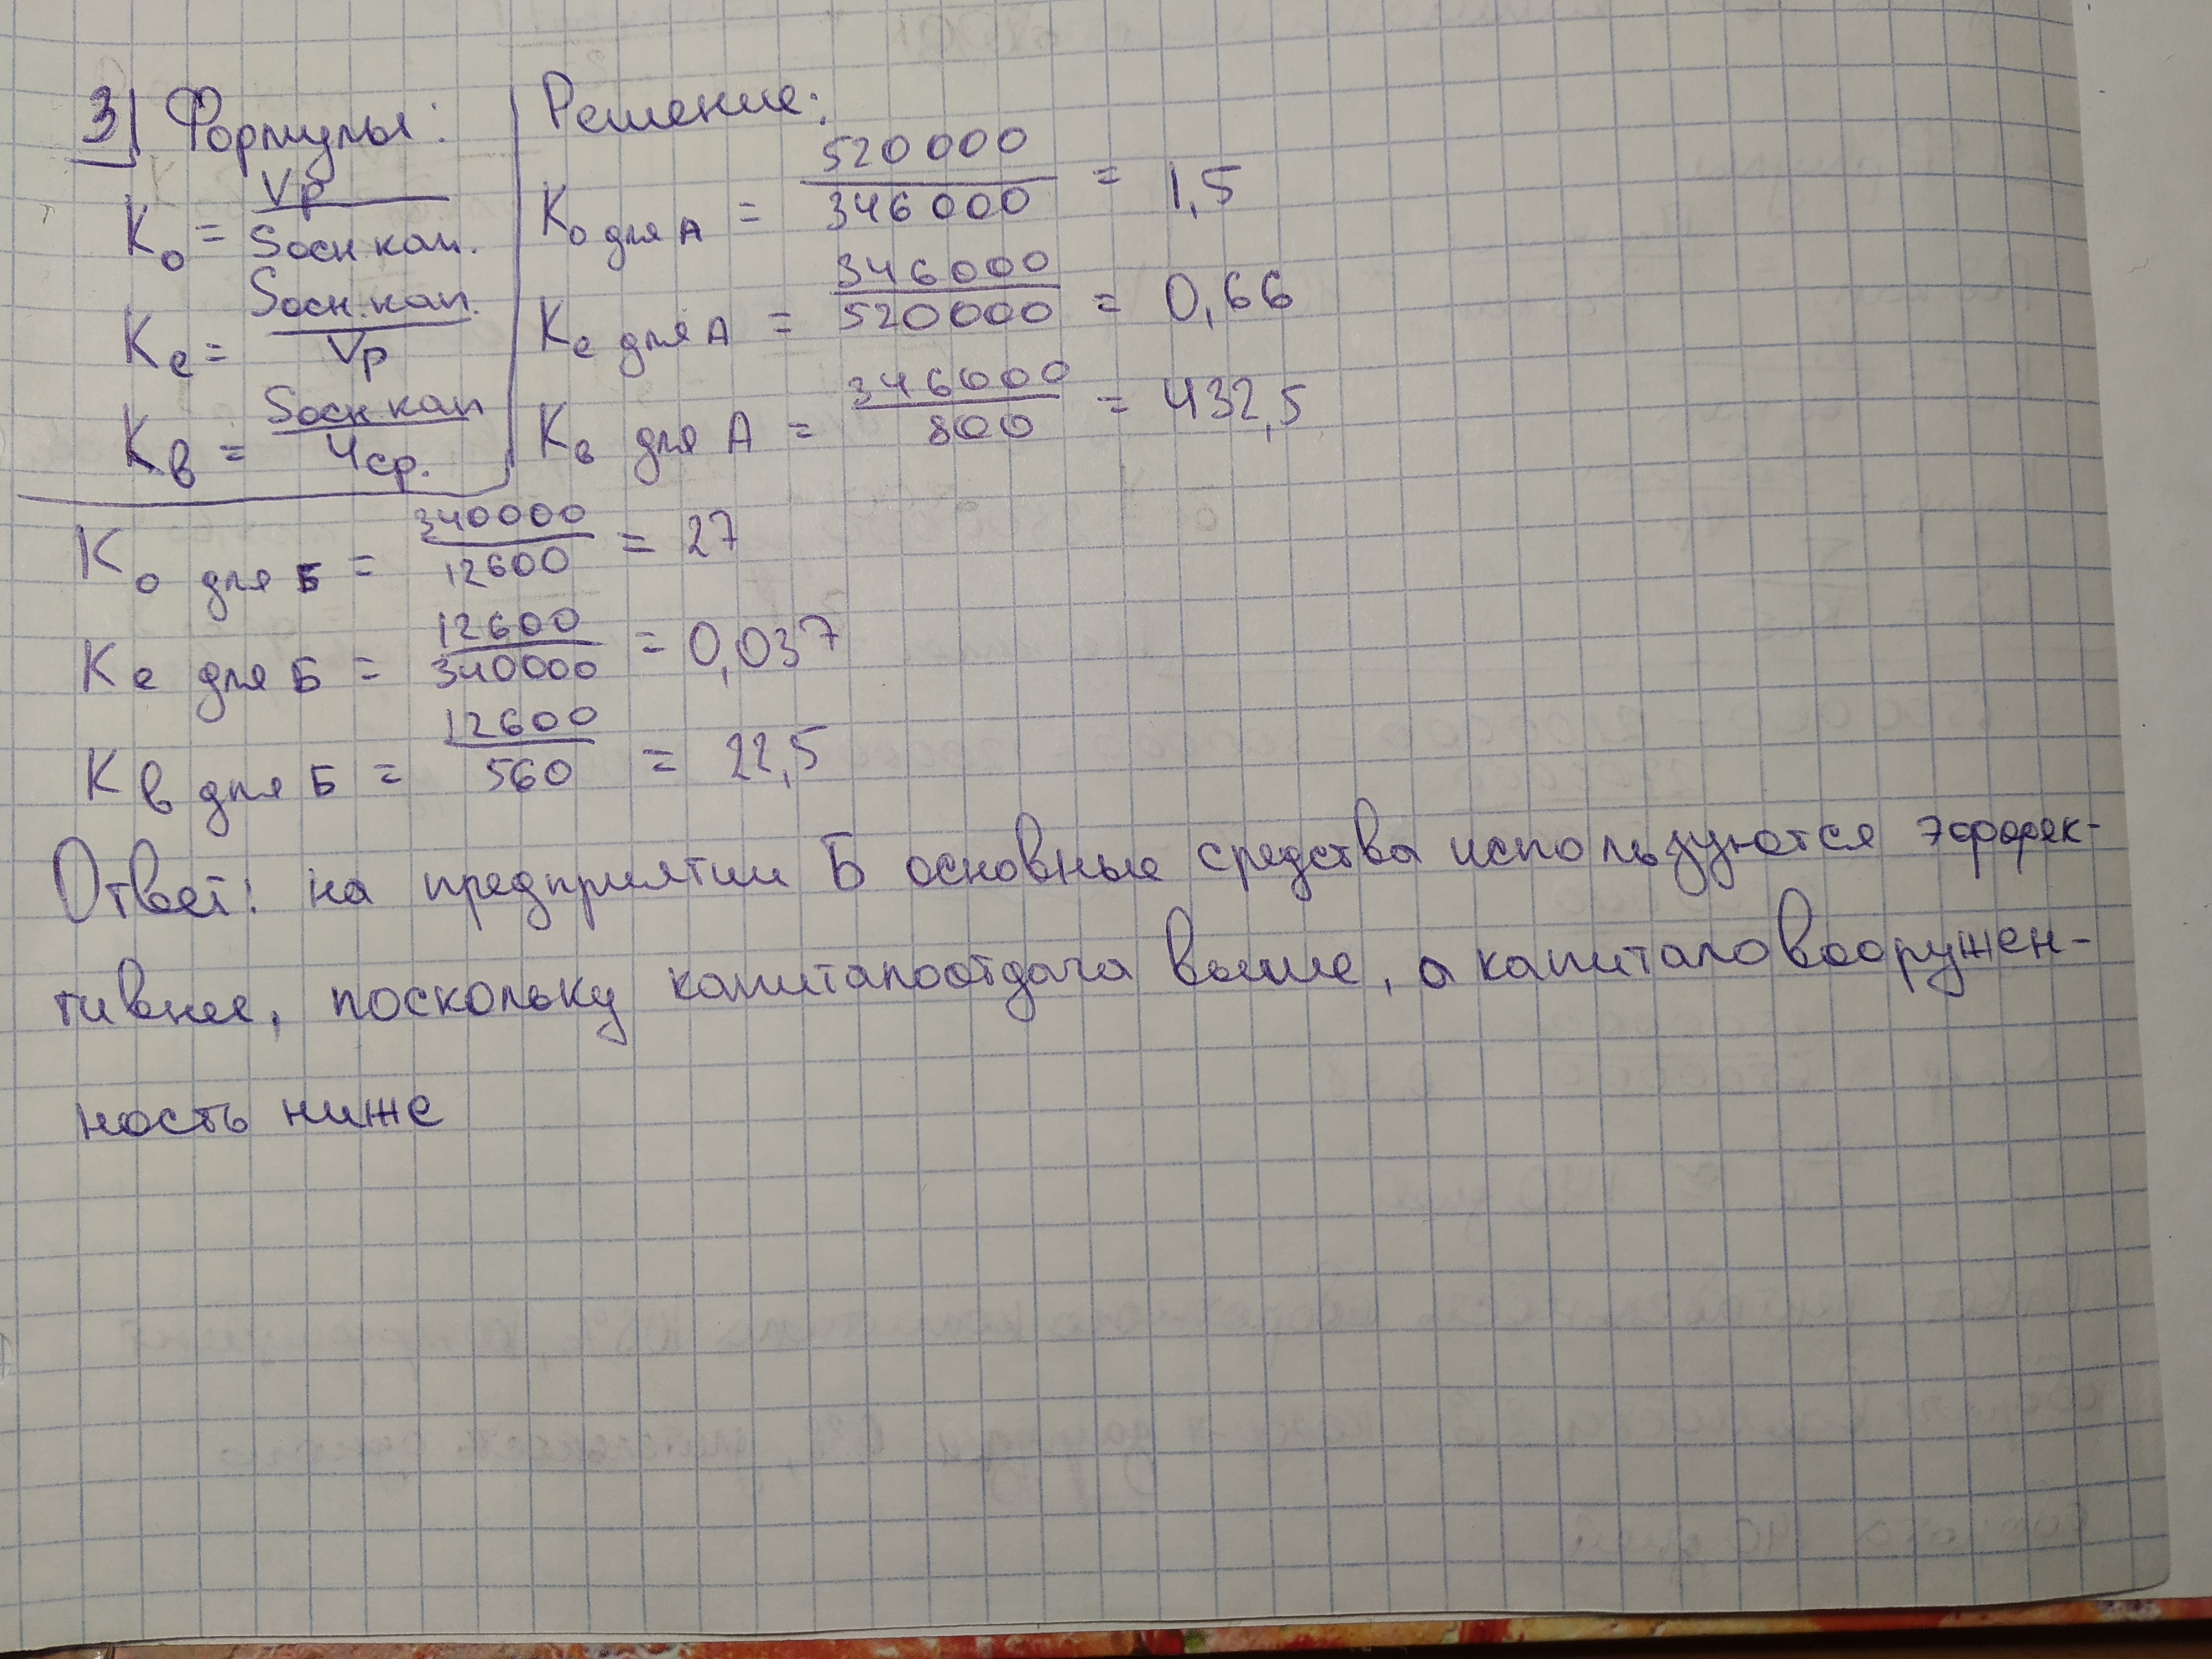 3) Формулы:
Kо = Vр / Sосн кап.
Kе = Sосн. кап. / Vр
Kв = Sосн кап / Чср.
Решение:
Kо для А = 520000 / 346000 = 1,5
Kе для А = 346000 / 520000 = 0,66
Kв для А = 346000 / 800 = 432,5
Kо для Б = 340000 / 12600 = 27
Kе для Б = 12600 / 340000 = 0,037
Kв для Б = 12600 / 560 = 22,5
Ответ: на предприятии Б основные средства используются эффек-
тивнее, поскольку капиталоотдача выше, а капиталовооружен-
ность ниже